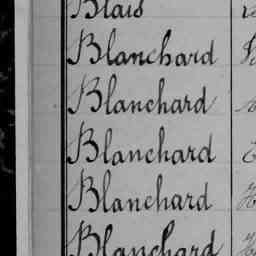 Blais
Blanchard
Blanchard
Blanchard
Blanchard
Blanchard